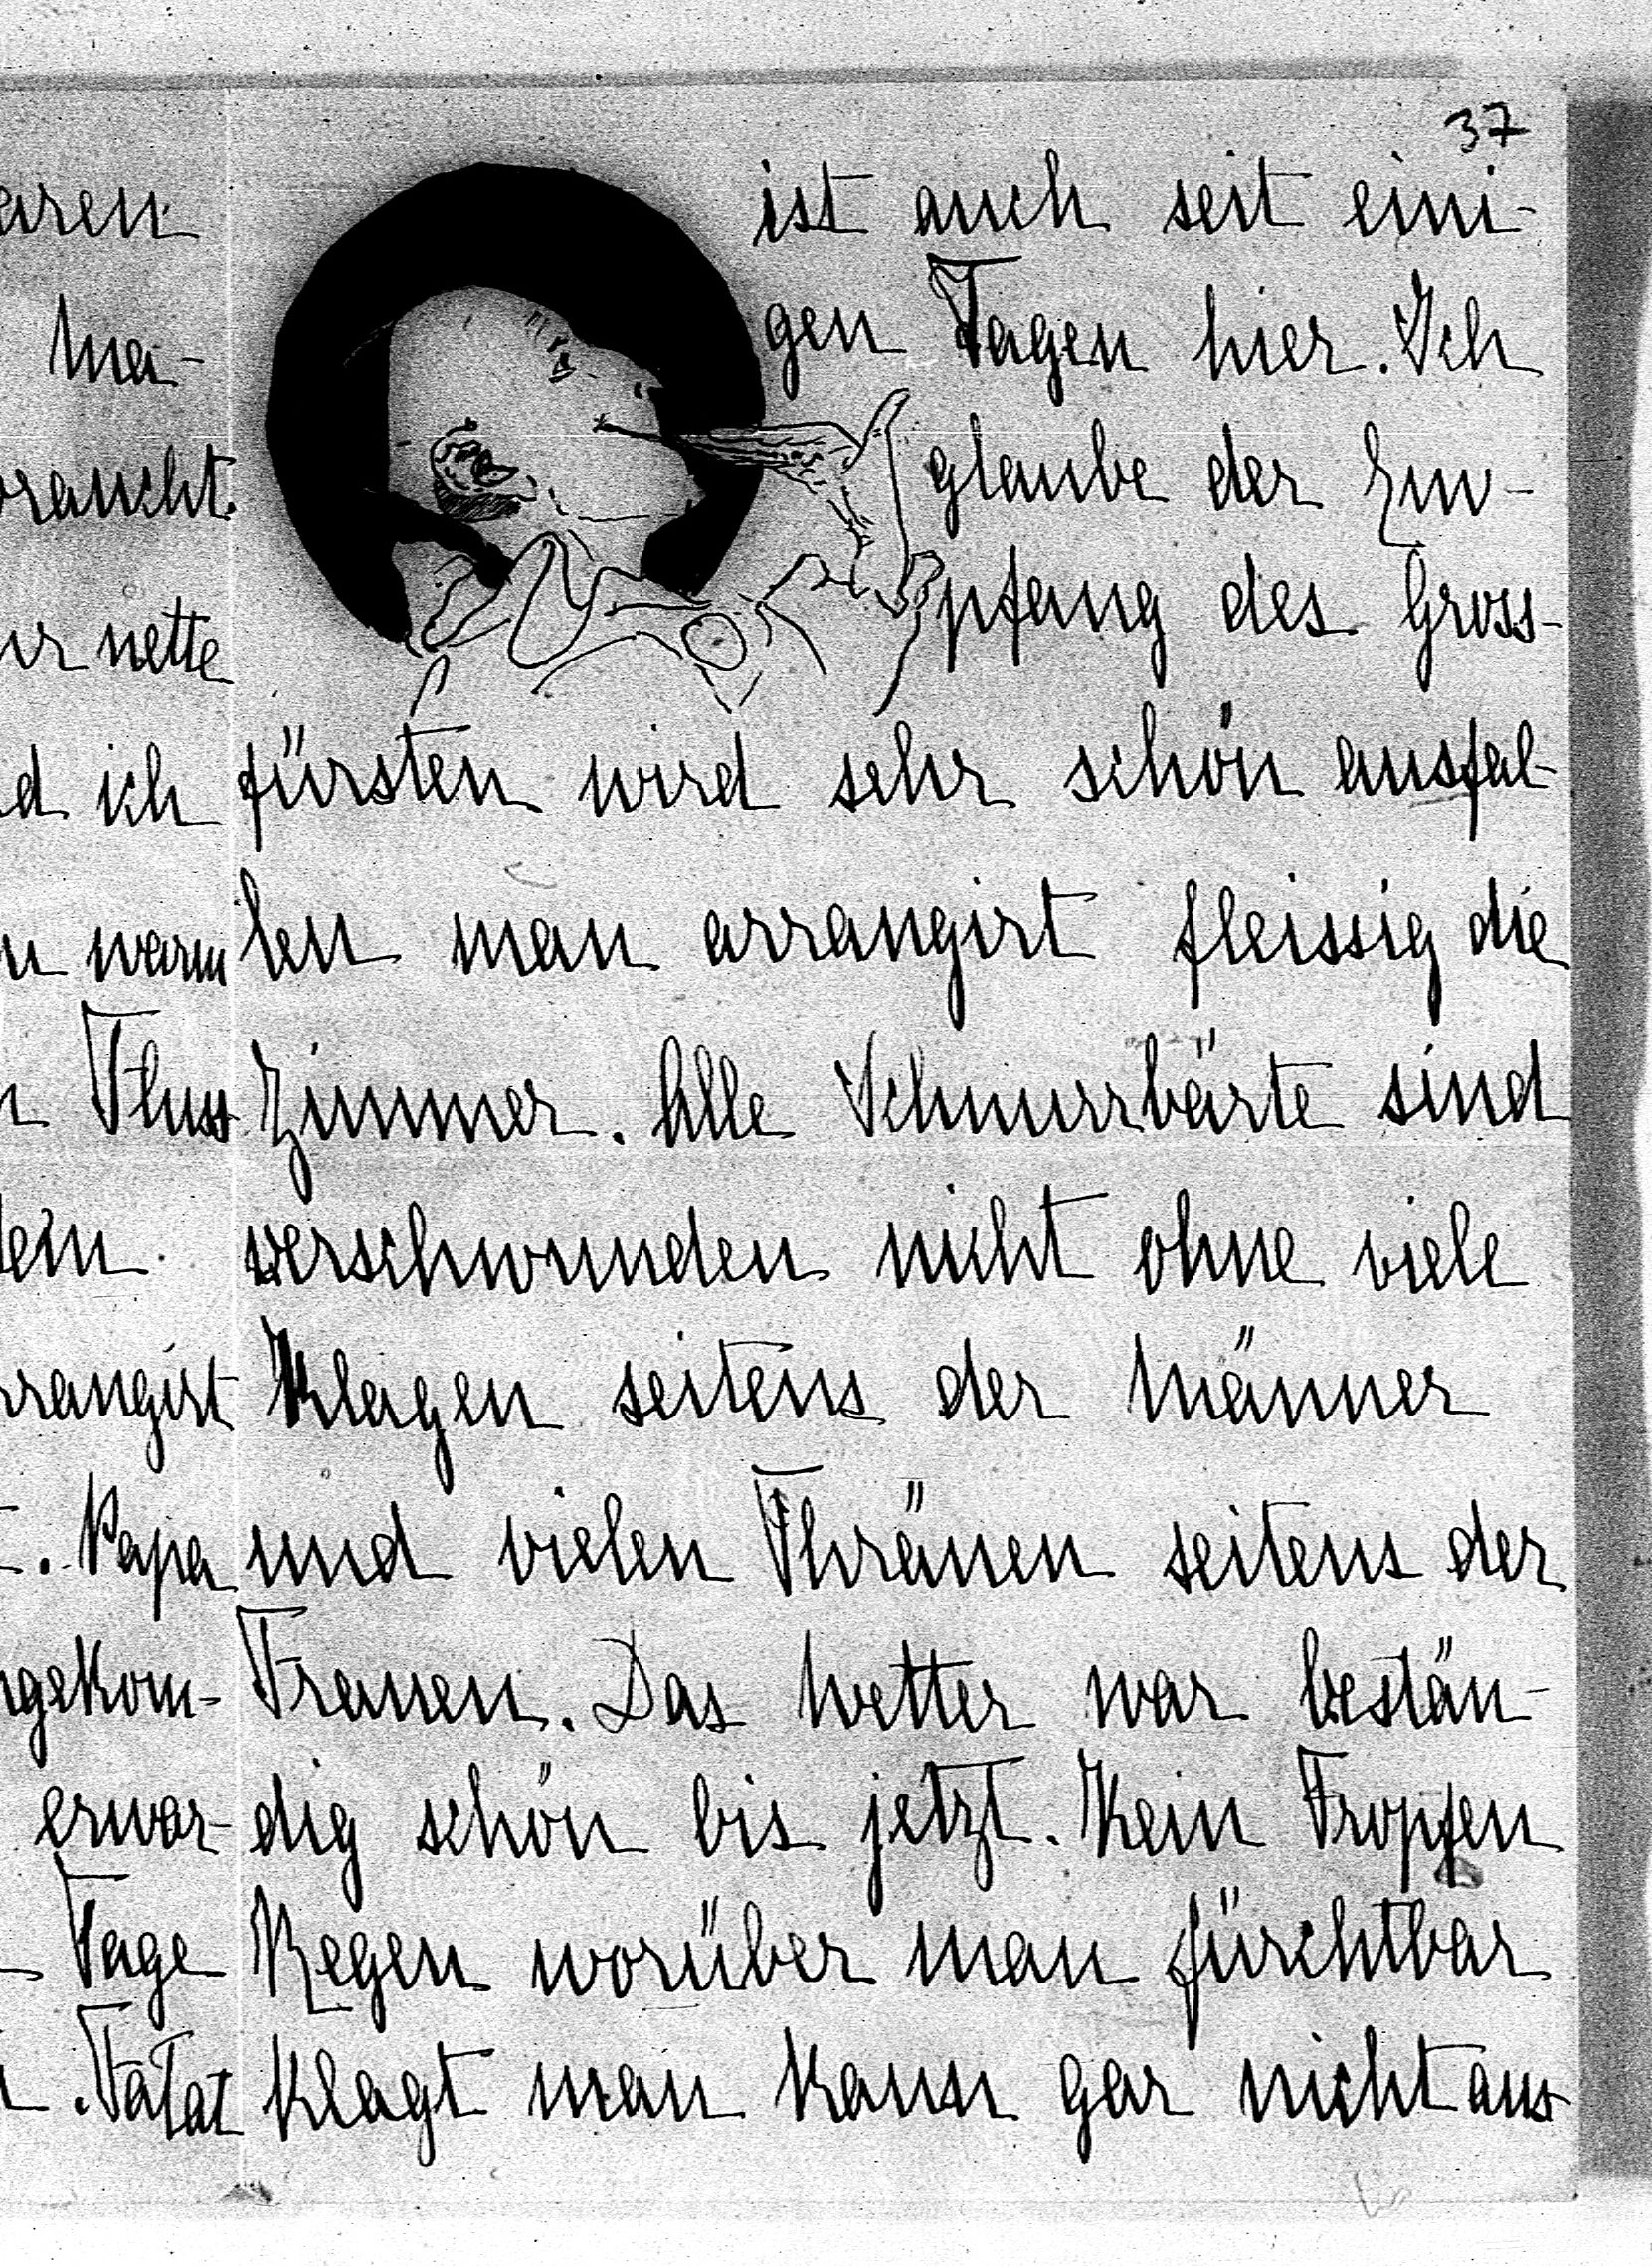 37
ist auch seit eini-
gen Tagen hier. Ich
glaube der Em-
pfang des Gross-
fürsten wird sehr schön ausfal-
len man arrangirt fleissig die
Zimmer. Alle Schnurrbärte sind
verschwunden nicht ohne viele
Klagen seitens der Männer
und vielen Thränen seitens der
Frauen. Das Wetter war bestän-
dig schön bis jetzt. Kein Tropfen
Regen worüber man fürchtbar
klagt man kann gar nicht aus-
aren
Ma-
braucht.
nette
d ich
warm
Fluss
dem
rrangirt
. Papa
ngekom-
erwar-
Tage
. Tatat